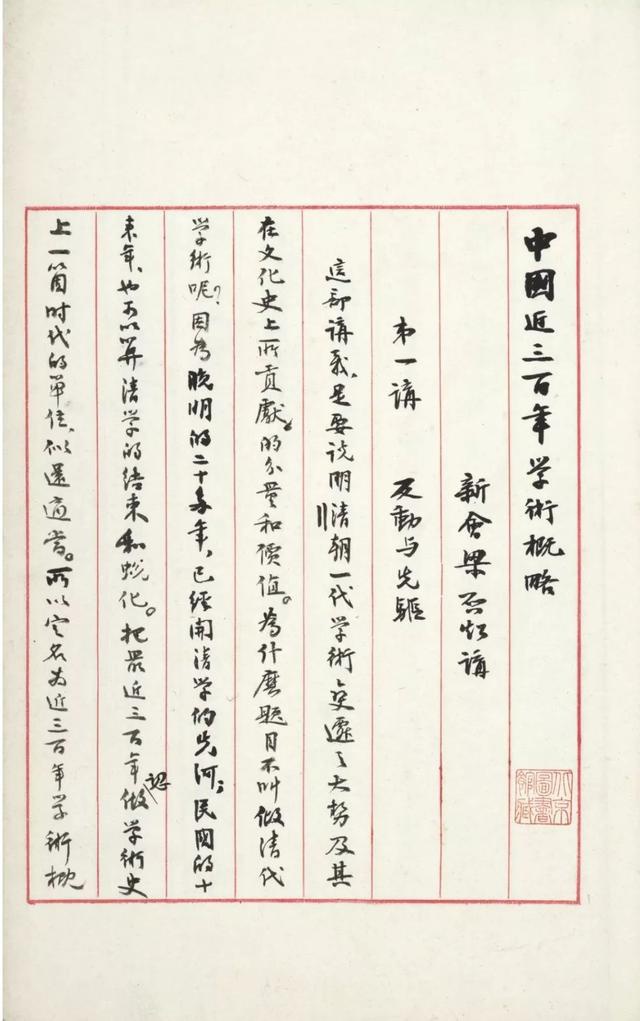 中國近三百年学術概略
新會梁启超講
第一講　反動与先驅
這部講義，是要说明清朝一代学術变遷之大势及其
在文化史上所貢獻的分量和價值。為什麽題目不叫做清代
学術呢？因為晚明的二十多年，已經開清学的先河；民國的十
来年，也可以算清学的结束和蜕化。把最近三百年認做学術史
上一箇时代的單位，似還適當。所以定名为近三百年学術概
北京圖書館藏